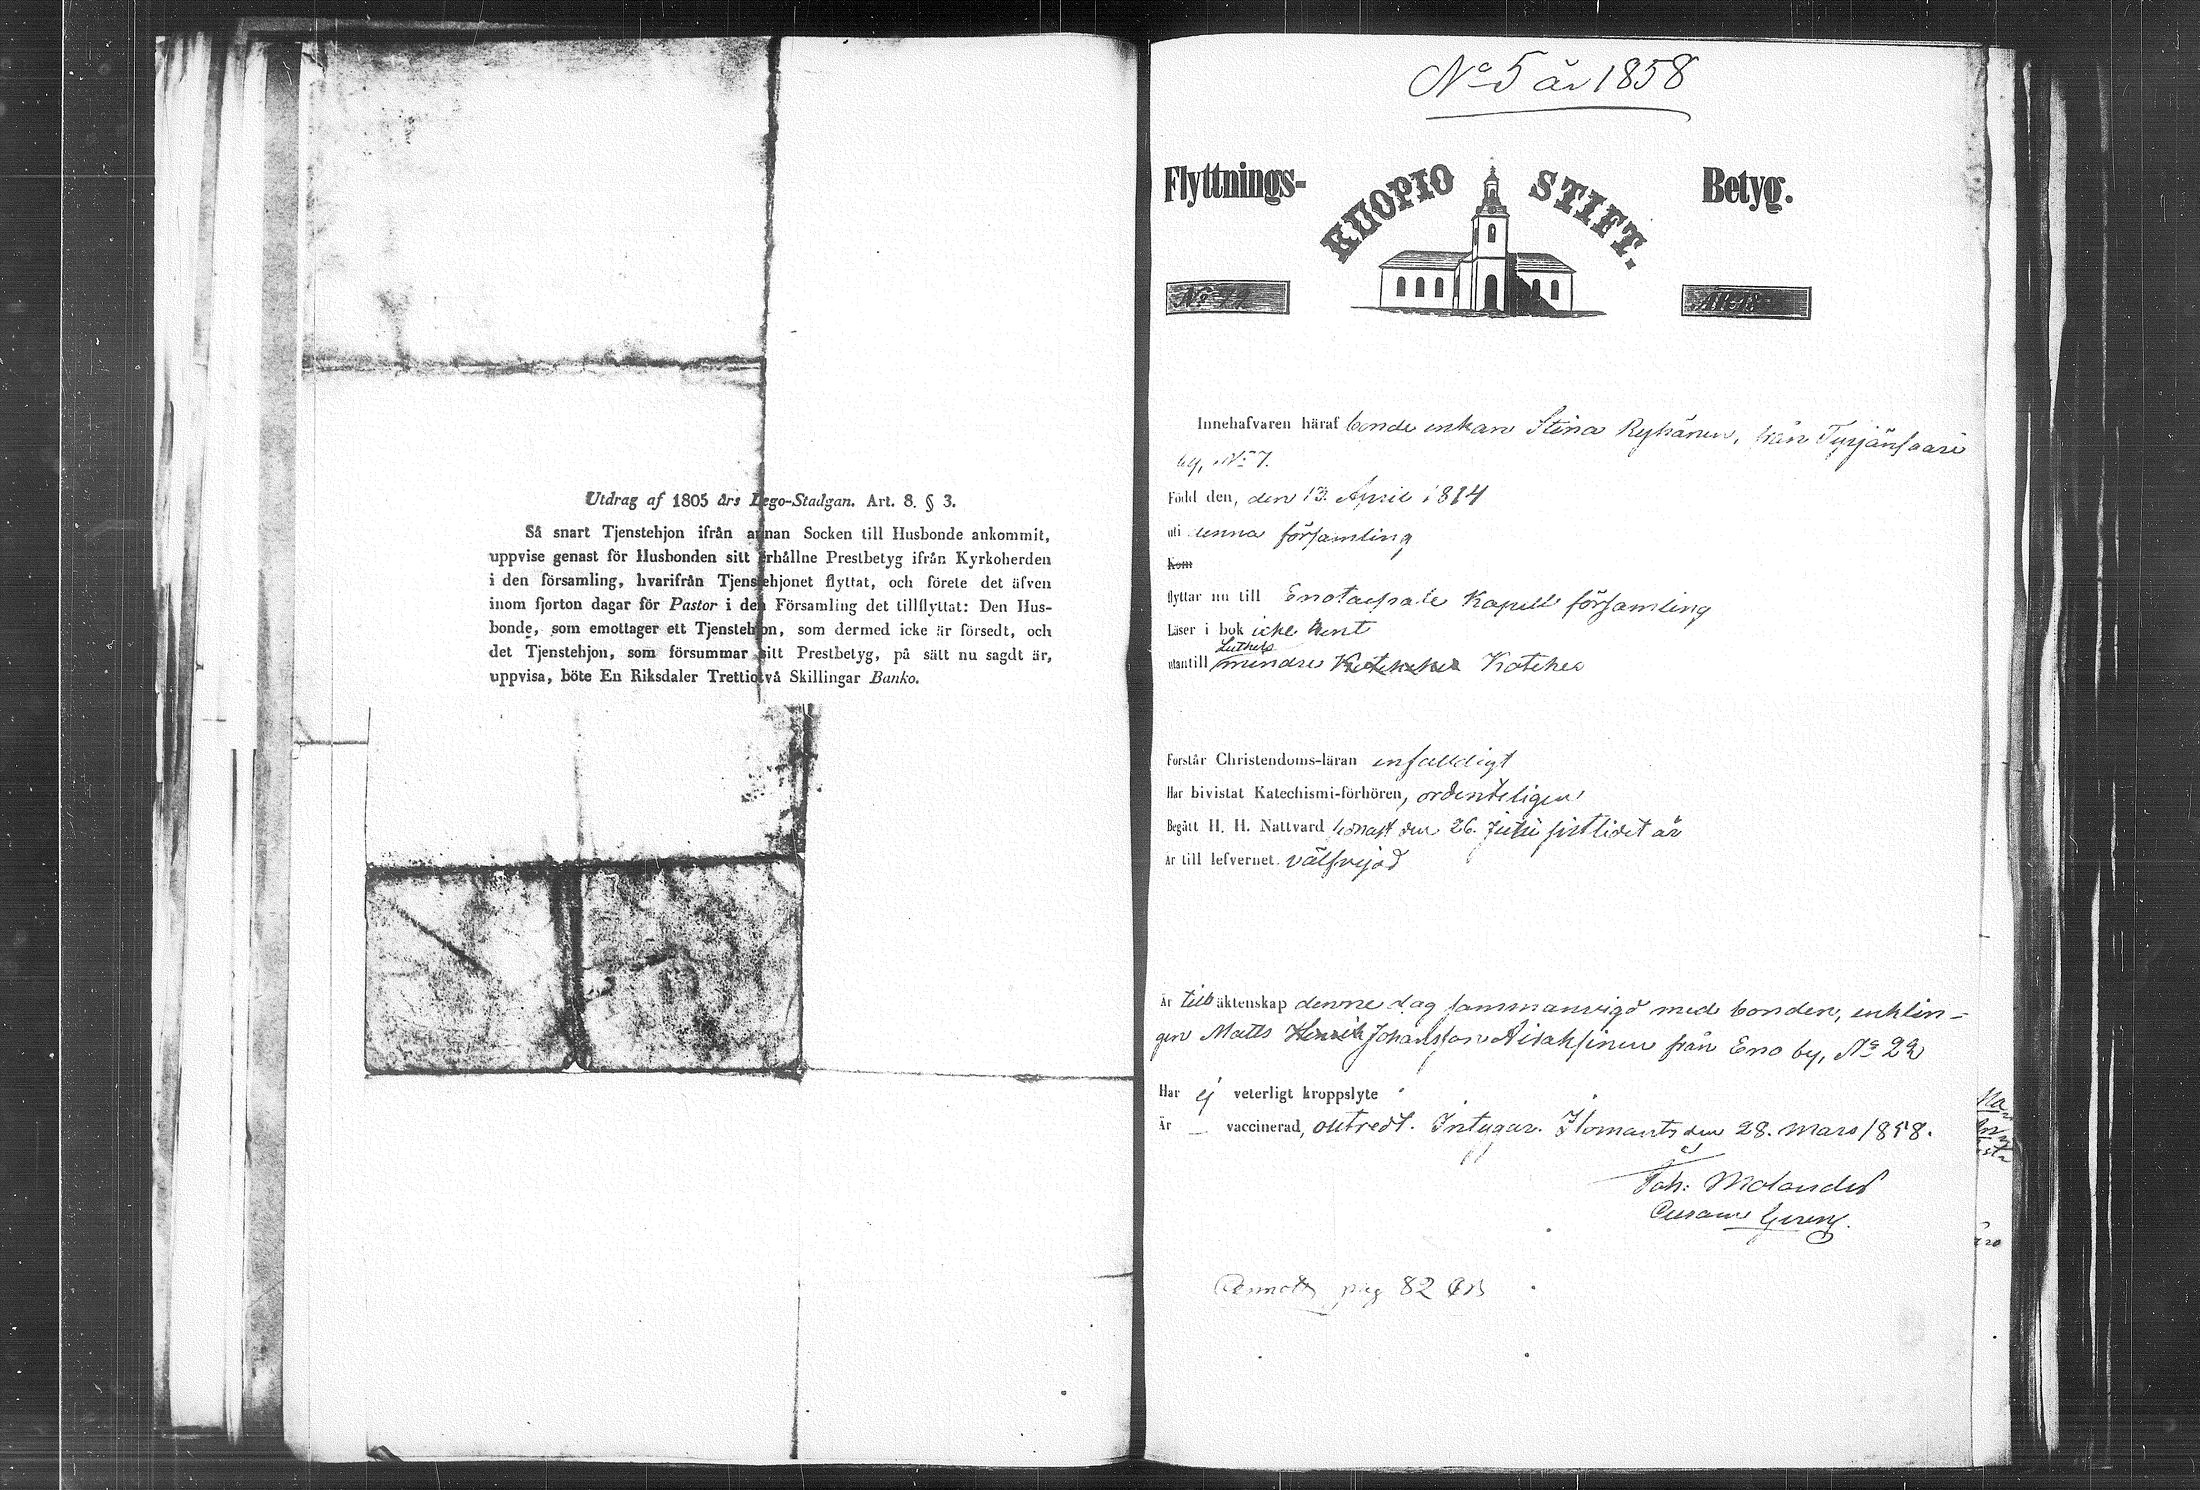 Utdrag af 1805 års Lego-Stadgan. Art. 8. § 3.
Så snart Tjenstehjon ifrån annan Socken till Husbonde ankommit,
uppvise genast för Husbonden sitt erhållne Prestbetyg ifrån Kyrkoherden
i den församling, hvarifrån Tjenstehjonet flyttat, och förete det äfven
inom fjorton dagar för Pastor i den Församling det tillflyttat: Den Hus-
bonde, som emottager ett Tjenstehjon, som dermed icke är försedt, och
det Tjenstehjon, som försummar sitt Prestbetyg, på sätt nu sagdt är,
uppvisa, böte En Riksdaler Trettiotvå Skillingar Banko.
No 5 år 1858
Flyttnings- KUOPIO STIFT. Betyg.
No 72
Innehafvaren häraf bonde enkan Stina Ryhänen, från Turjänsaari
by, No 7.
Född den, den 13. April 1814
uti denna församling
Kom
flyttar nu till Enotaipale Kapell församling
Läser i bok icke kent
Luthers
utantill mindre Kateches
Förstår Christendoms-läran enfalldigt
Har bivistat Katechismi-förhören, ordenteligen
Begått H. H. Nattvard senast den 26. Julii sistlidet år
Är till lefvernet välfrejdad
Är till äktenskap denne dag sammanvigd med bonden, enklin-
gen Matts Henrik Johansson Aisaksinen från Eno by, No 22
Har ej veterligt kroppslyte
Är — vaccinerad, outredt. Intygar. Ilomants den 28. Mars 1858.
Joh: Molander
pag 82